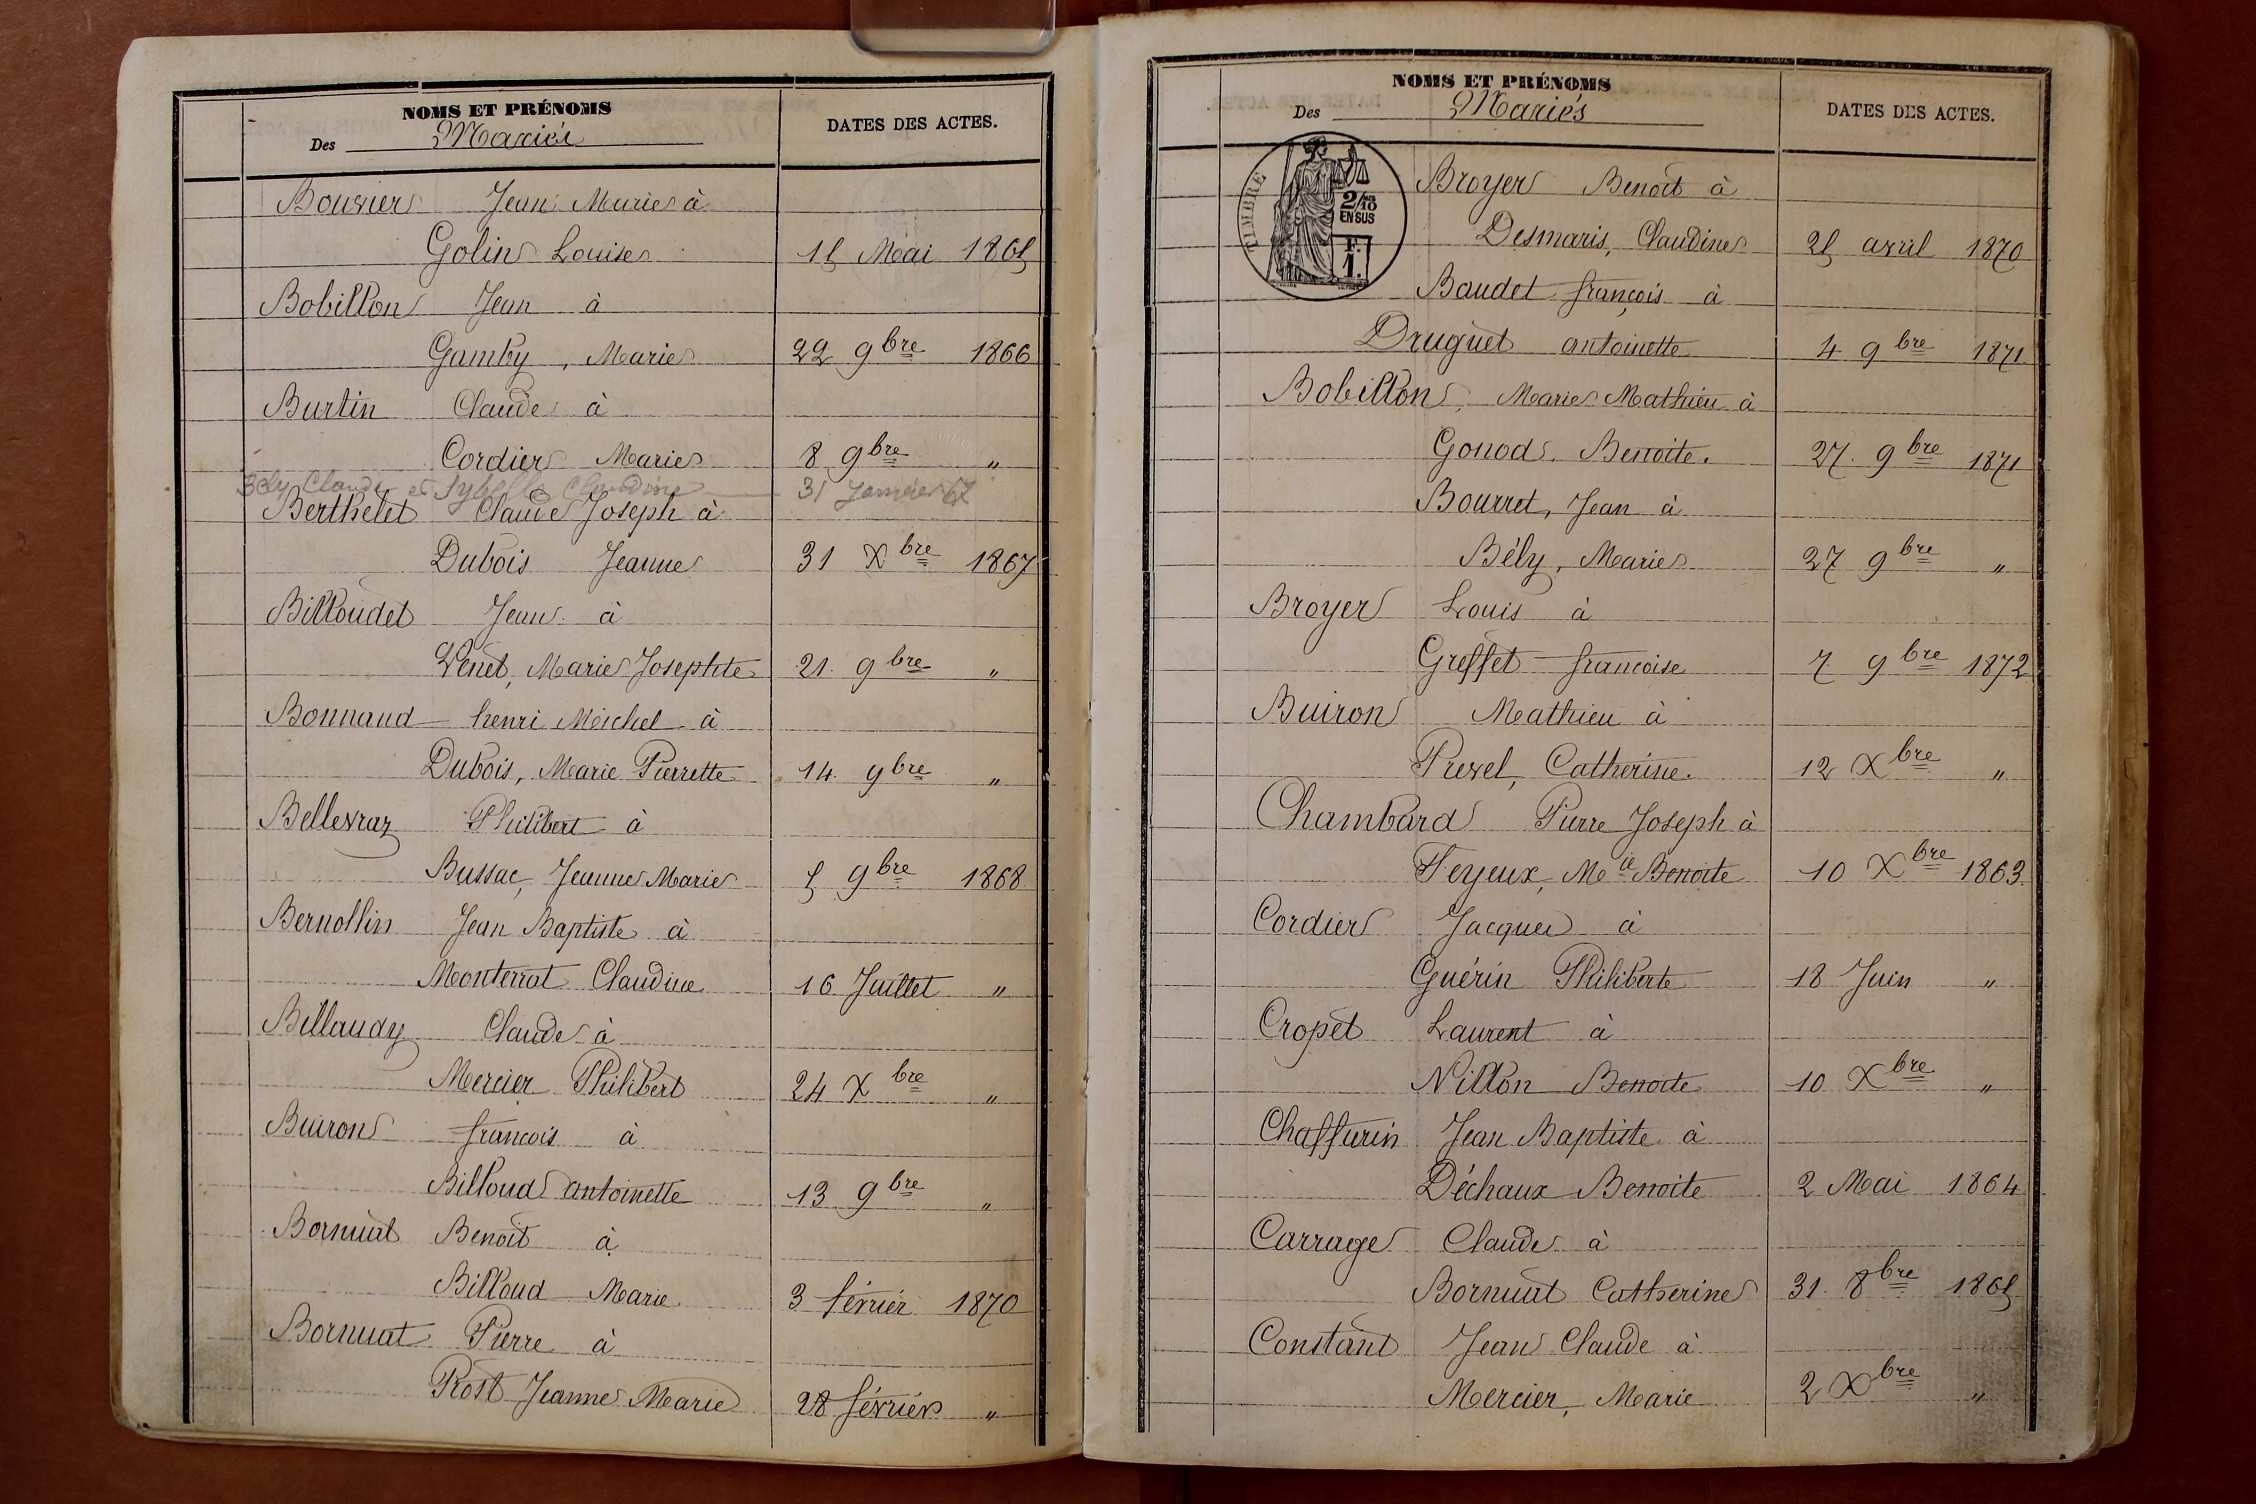 NOMS ET PRÉNOMS
Des Mariés
DATES DES ACTES.
Bouvier Jean Marie à
Golin Louise 15 Mai 1865
Bobillon Jean à
Gamby, Marie 22 9bre 1866
Burtin Claude à
Cordier Marie 8 9bre "
Bély Claude et Claudine 31 Janvier 67
Berthelet Claude Joseph à
Dubois Jeanne 31 Xbre 1867
Billoudet Jean à
Venet, Marie Josephte 21 9bre "
Bonnaud henri Michel à
Dubois, Marie Pierrette 14 9bre "
Bellevraz Philibert à
Bussac, Jeanne Marie 5 9bre 1868
Bernollin Jean Baptiste à
Monterrat Claudine 16 Juillet "
Billaudy Claude à
Mercier Philibert 24 Xbre "
Buiron françois à
Billoud antoinette 13 9bre "
Bornuat Benoît à
Billoud Marie 3 février 1870
Bornuat Pierre à
Prost Jeanne Marie 28 février "
NOMS ET PRÉNOMS
Des Mariés
DATES DES ACTES.
TIMBRE
2/10
EN SUS
F.
1.
Broyer Benoit à
Desmaris, Claudine 25 avril 1870
Baudet françois à
Druguet antoinette 4 9bre 1871
Bobillon, Marie Mathieu à
Gonod Benoite. 27 9bre 1871
Bourret, Jean à
Bély, Marie 27 9bre "
Broyer Louis à
Greffet francoise 7 9bre 1872
Buiron Mathieu à
Prevel, Catherine. 12 Xbre "
Chambard Pierre Joseph à
Feyeux, Mie Benoite 10 Xbre 1863.
Cordier Jacques à
Guérin Philiberte 18 Juin "
Cropet Laurent à
Nillon Benoite 10 Xbre "
Chaffurin Jean Baptiste à
Déchaux Benoite 2 Mai 1864
Carrage Claude à
Bornuat Catherine 31 8bre 1865
Constant Jean Claude à
Mercier, Marie 2 Xbre "